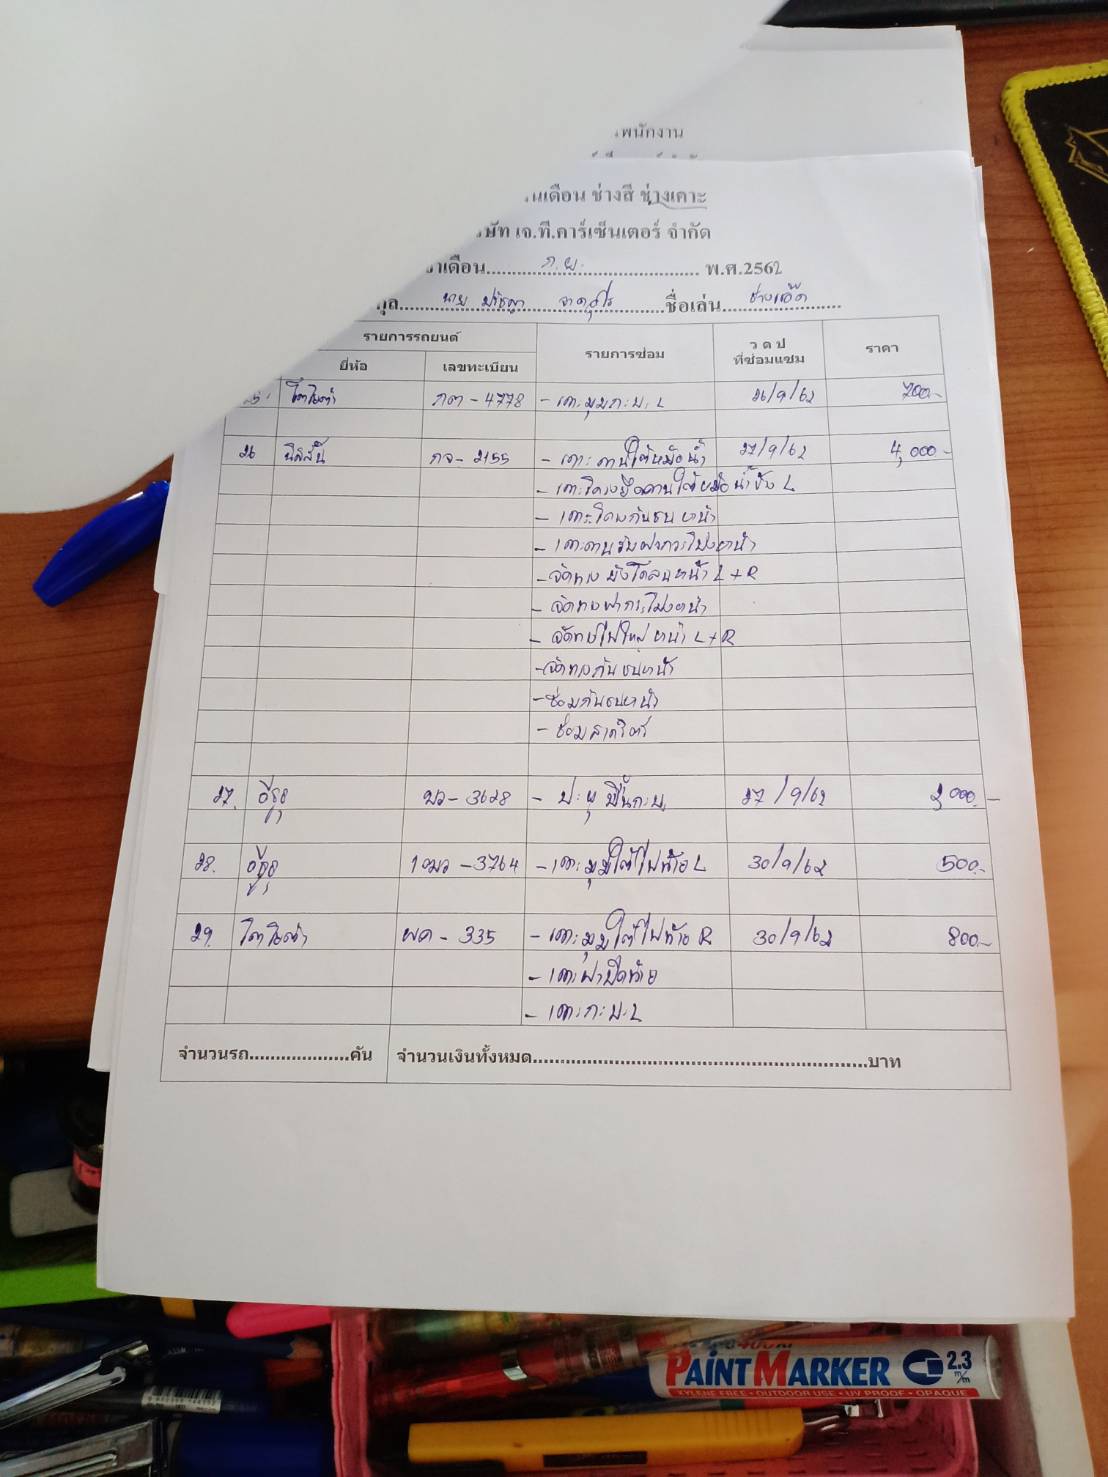 พนักงาน
ช่างสี ช่างเคาะ
เจ.ที.คาร์เซ็นเตอร์ จำกัด
เดือน ก.ย. พ.ศ.2562
นาย ชื่อเล่น
รายการรถยนต์ รายการซ่อม ว ด ป ที่ซ่อมแซม ราคา
ยี่ห้อ เลขทะเบียน
โตโยต้า กต - 4778 - เคาะมุมกะบะ L 26/9/62 700.-
26 นิสสัน กจ - 2155 - เคาะคานใต้หม้อน้ำ 27/9/62 4,000 -
- เคาะโครงยึดคานใต้หม้อน้ำข้าง L
- เคาะโครงกันชนหน้า
- เคาะคานรับฝากระโปรงหน้า
- จัดทรงบังโคลนหน้า L + R
- จัดทรงฝากระโปรงหน้า
- จัดทรงไฟใหญ่หน้า L + R
- จัดทรงกันชนหน้า
- ซ่อมกันชนหน้า
- ซ่อม
27. อีซูซุ บว - 3628 - ปะผุพื้นกะบะ 27/9/62 000.-
28. อีซูซุ 1ฒว - 3764 - เคาะมุมใต้ไฟท้าย L 30/9/62 500.-
29. โตโยต้า ผค - 335 - เคาะมุมใต้ไฟท้าย R 30/9/62 800.-
- เคาะฝาปิดท้าย
- เคาะกะบะ L
จำนวนรถ....................คัน จำนวนเงินทั้งหมด....................บาท
PAINT MARKER 2.3 m/m
XYLENE FREE · OUTDOOR USE · UV PROOF · OPAQUE